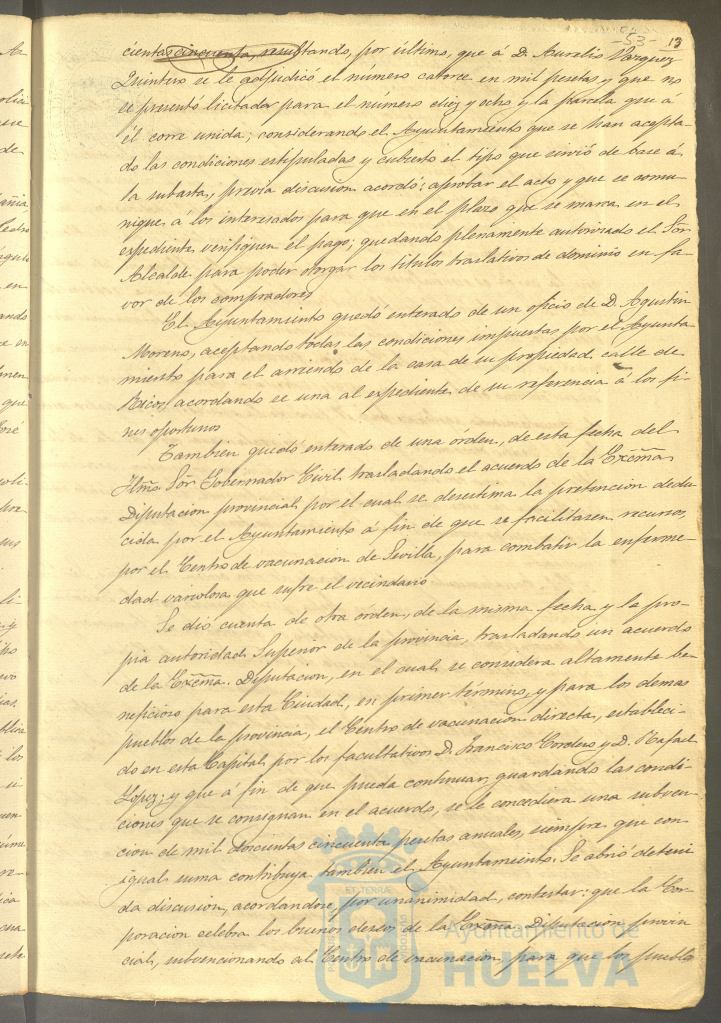 -53-
13
cientas cincuenta, resultando, por último, que á D. Aurelio Vazquez
Quintero se le adjudicó el número catorce en mil pesetas y que no
se presentó licitador para el número diez y ocho y la parcela que á
él corre unida; considerando el Ayuntamiento que se han acepta-
do las condiciones estipuladas y cubierto el tipo que sirvió de base á
la subasta, prévia discusion acordó; aprobar el acto y que se comu-
nique á los interesados para que en el plazo que se marca en el
expediente verifiquen el pago; quedando plenamente autorizado el Sor.
Alcalde para poder otorgar los títulos traslativos de dominio en fa-
vor de los compradores
El Ayuntamiento quedó enterado de un oficio de D. Agustin
Moreno, aceptando todas las condiciones impuestas por el Ayunta
miento para el arriendo de la casa de su propiedad calle de
acordando se una al expediente de su referencia á los fi-
nes oportunos
Tambien quedó enterado de una órden, de esta fecha del
Iltmo Sor Gobernador Civil trasladando el acuerdo de la Excma
Diputacion provincial por el cual se desestima la pretencion dedu-
cida por el Ayuntamiento á fin de que se facilitasen recursos
por el Centro de vacunacion de Sevilla, para combatir la enferme-
dad variolosa que sufre el vecindario
Se dió cuenta de otra órden, de la misma fecha y la pro-
pia autoridad Superior de la provincia, trasladando un acuerdo
de la Excma. Diputacion, en el cual se considera altamente be-
neficioso para esta Ciudad, en primer término, y para los demas
pueblos de la provincia, el Centro de vacunacion directa, estableci-
do en esta Capital por los facultativos D. Francisco Cordero y D. Rafael
Lopez; y que á fin de que pueda continuar, guardando las condi-
ciones que se consignan en el acuerdo, se le concediera una subven-
cion de mil doscientas cincuenta pesetas anuales, siempre que con
igual suma contribuya tambien el Ayuntamiento. Se abrió deteni
da discusion, acordandose, por unanimidad, contestar: que la Cor-
poracion celebra los buenos deseos de la Excma. Diputacion provin
cial, subvencionando al Centro de vacunacion para que los pueblos
ET TERRÆ
Ayuntamiento de
HUELVA